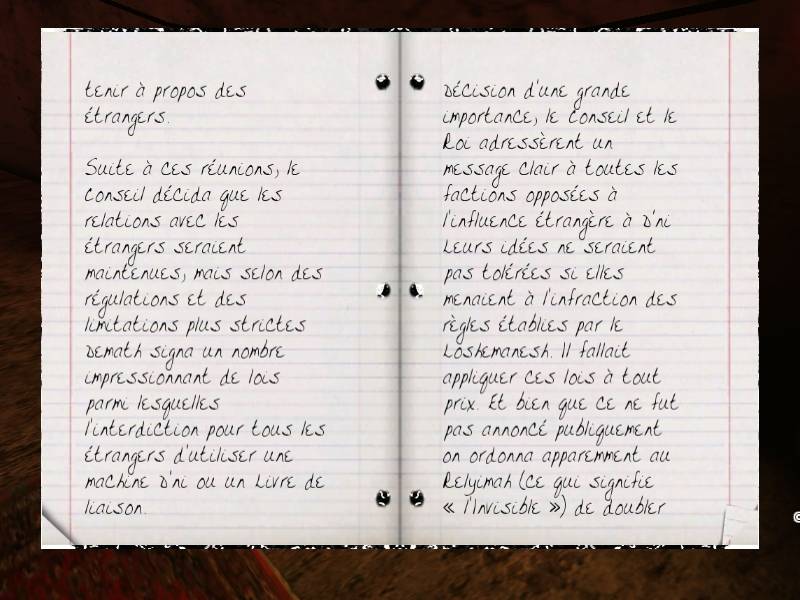 tenir à propos des
étrangers.
Suite à ces réunions, le
Conseil décida que les
relations avec les
étrangers seraient
maintenues, mais selon des
régulations et des
limitations plus strictes
Demath signa un nombre
impressionnant de lois
parmi lesquelles
l'interdiction pour tous les
étrangers d'utiliser une
machine D'ni ou un Livre de
liaison.
Décision d'une grande
importance, le Conseil et le
Roi adressèrent un
message clair à toutes les
factions opposées à
l'influence étrangère à D'ni
Leurs idées ne seraient
pas tolérées si elles
menaient à l'infraction des
règles établies par le
Loshemanesh. Il fallait
appliquer ces lois à tout
prix. Et bien que ce ne fut
pas annoncé publiquement
on ordonna apparemment au
Relyimah (ce qui signifie
« l'Invisible ») de doubler
©